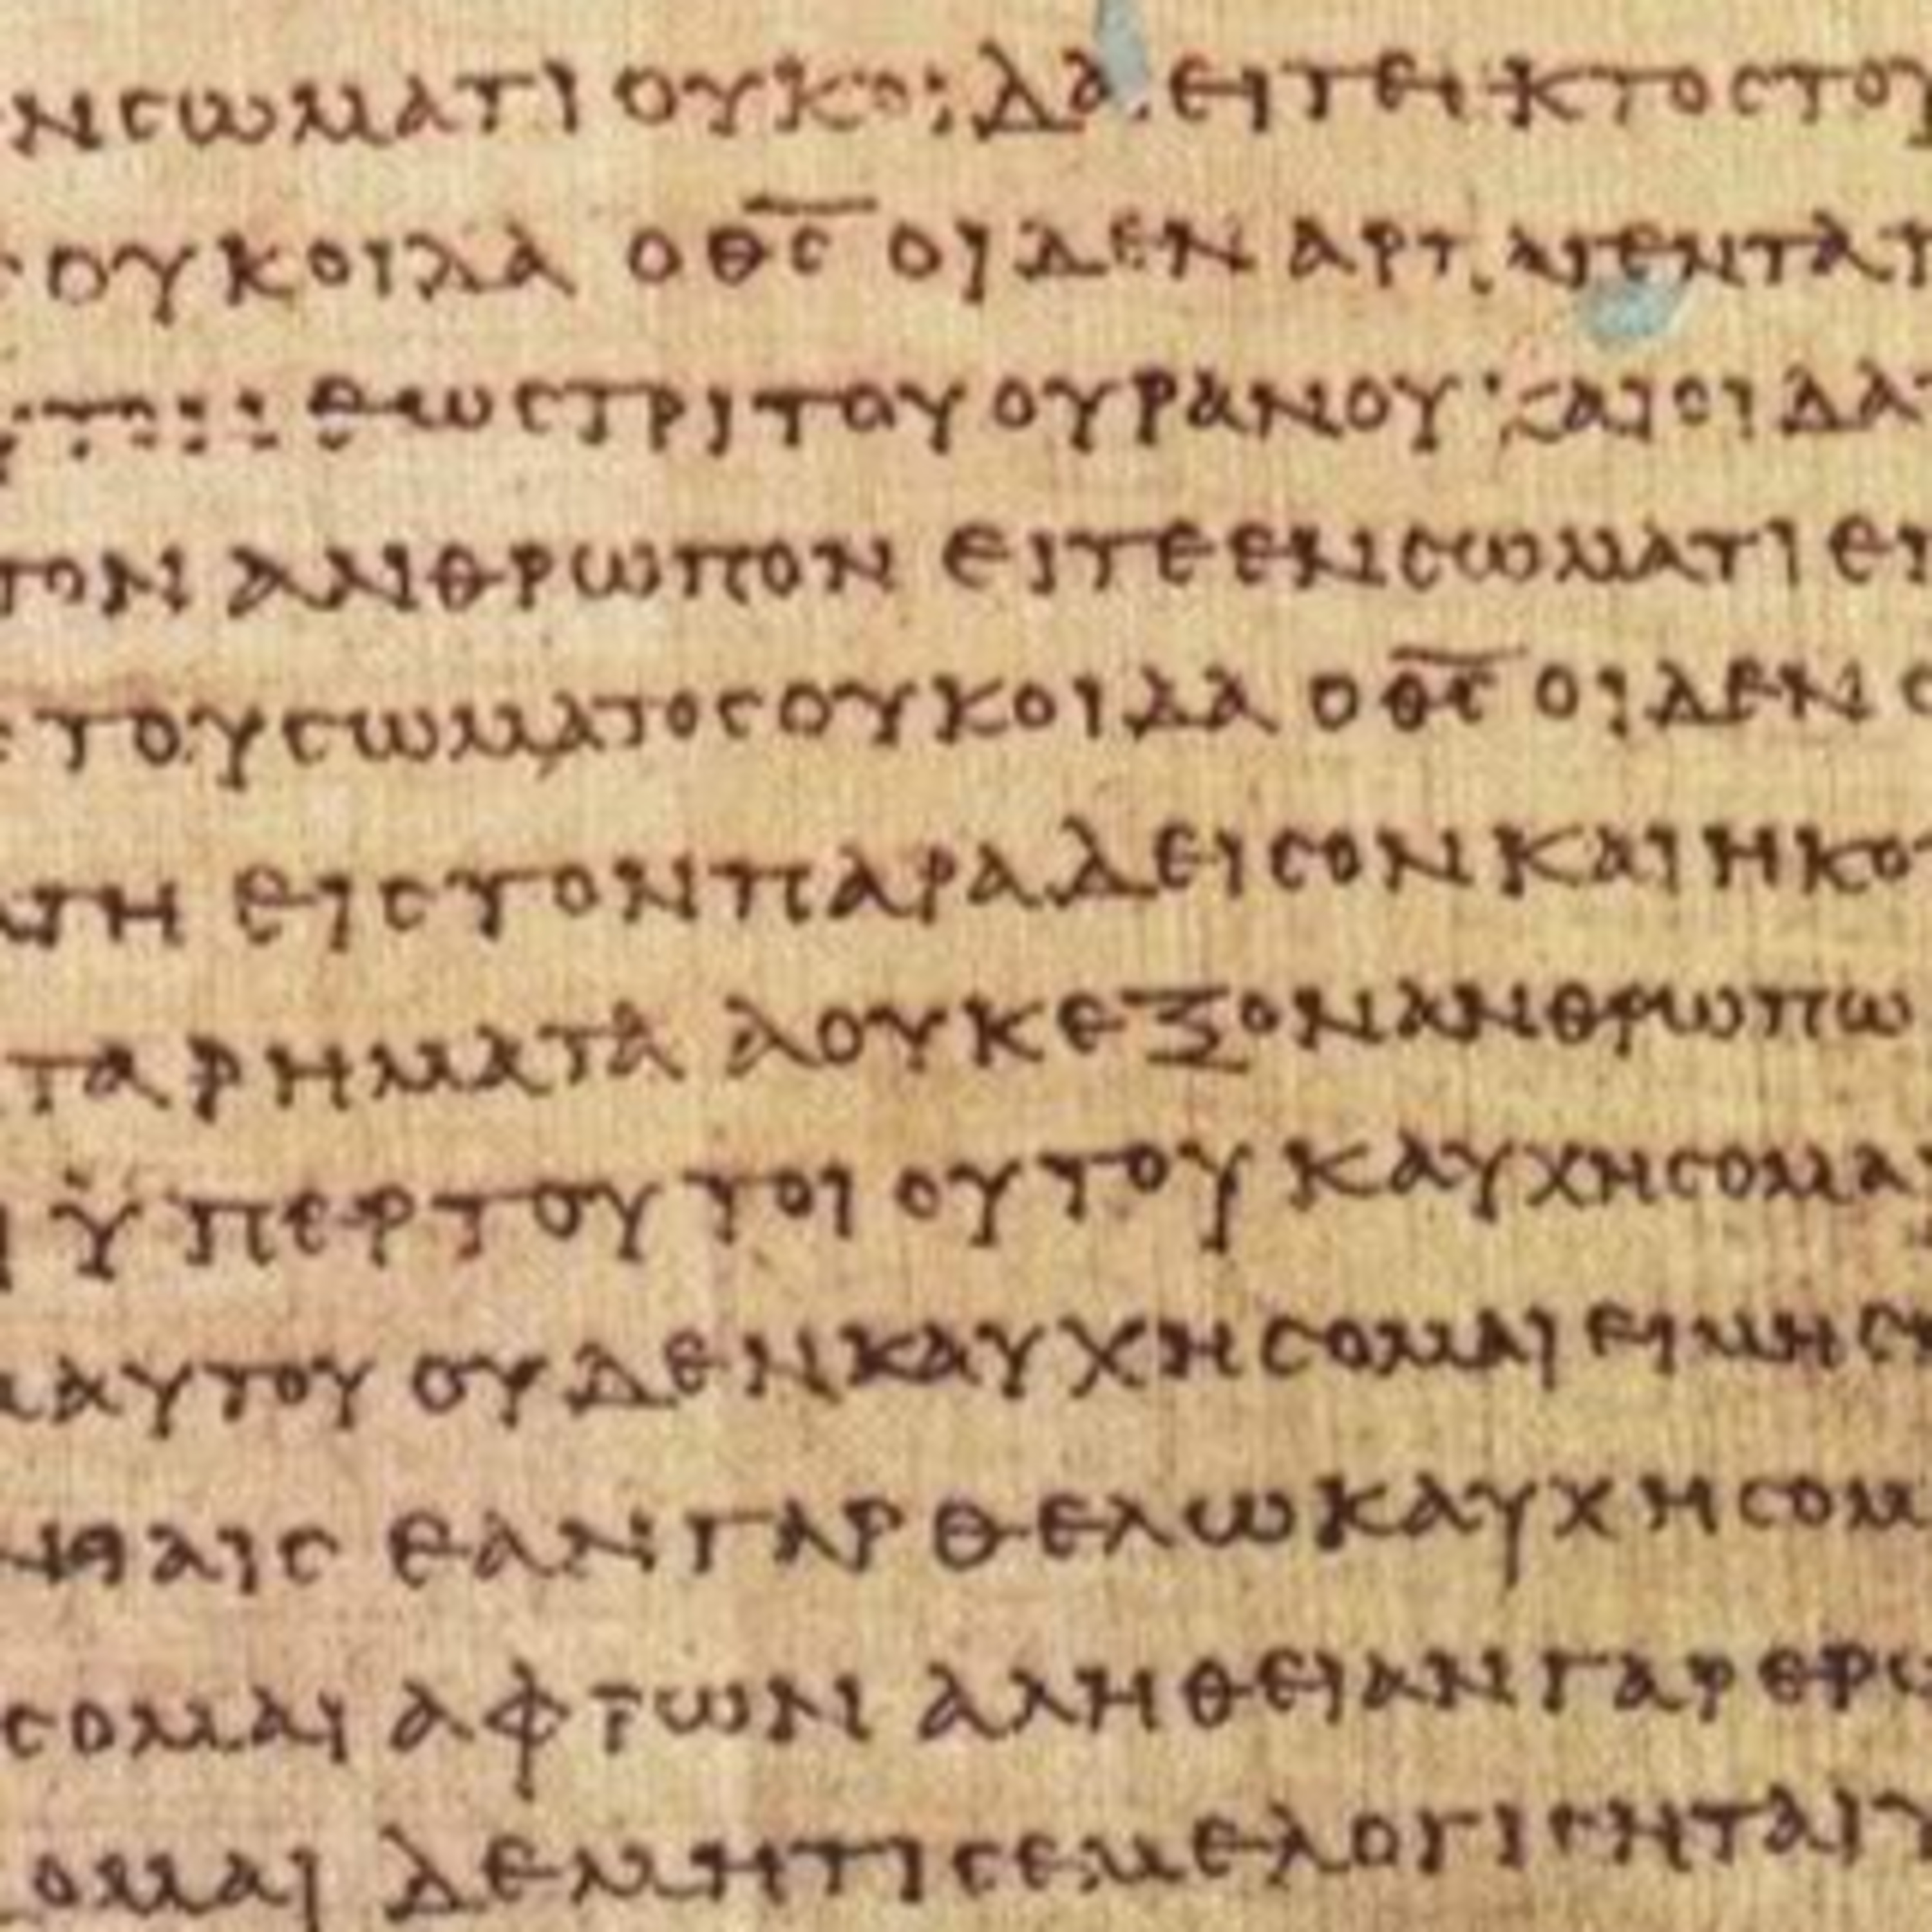 ΝϹΩΜΑΤΙ ΟΥΚΟΙΔΑ ΕΙΤΕΕΚΤΟϹΤΟΥ
ΟΥΚΟΙΔΑ ΟΘ̅Ϲ̅ ΟΙΔΕΝ ΑΡΠΑΓΕΝΤΑ
ΕΩϹΤΡΙΤΟΥ ΟΥΡΑΝΟΥ ΚΑΙΟΙΔΑ
ΤΟΝ ΑΝΘΡΩΠΟΝ ΕΙΤΕΕΝϹΩΜΑΤΙ ΕΙ
ΤΟΥϹΩΜΑΤΟϹΟΥΚΟΙΔΑ ΟΘ̅Ϲ̅ ΟΙΔΕΝ Ο
ΓΗ ΕΙϹΤΟΝΠΑΡΑΔΕΙϹΟΝΚΑΙΗΚΟΥ
ΤΑΡΗΜΑΤΑ ΑΟΥΚΕΞΟΝΑΝΘΡΩΠΩ
ΫΠΕΡΤΟΥΤΟΙΟΥΤΟΥ ΚΑΥΧΗϹΟΜΑΙ
ΜΑΥΤΟΥ ΟΥΔΕΝΚΑΥΧΗϹΟΜΑΙ ΕΙΜΗ
ΝΙΑΙϹ ΕΑΝΓΑΡΘΕΛΩΚΑΥΧΗϹΟΜ
ϹΟΜΑΙ ΑΦΡΩΝ ΑΛΗΘΕΙΑΝΓΑΡΕΡΩ
ΟΜΑΙ ΔΕΜΗΤΙϹΕΜΕΛΟΓΙϹΗΤΑΙΥ